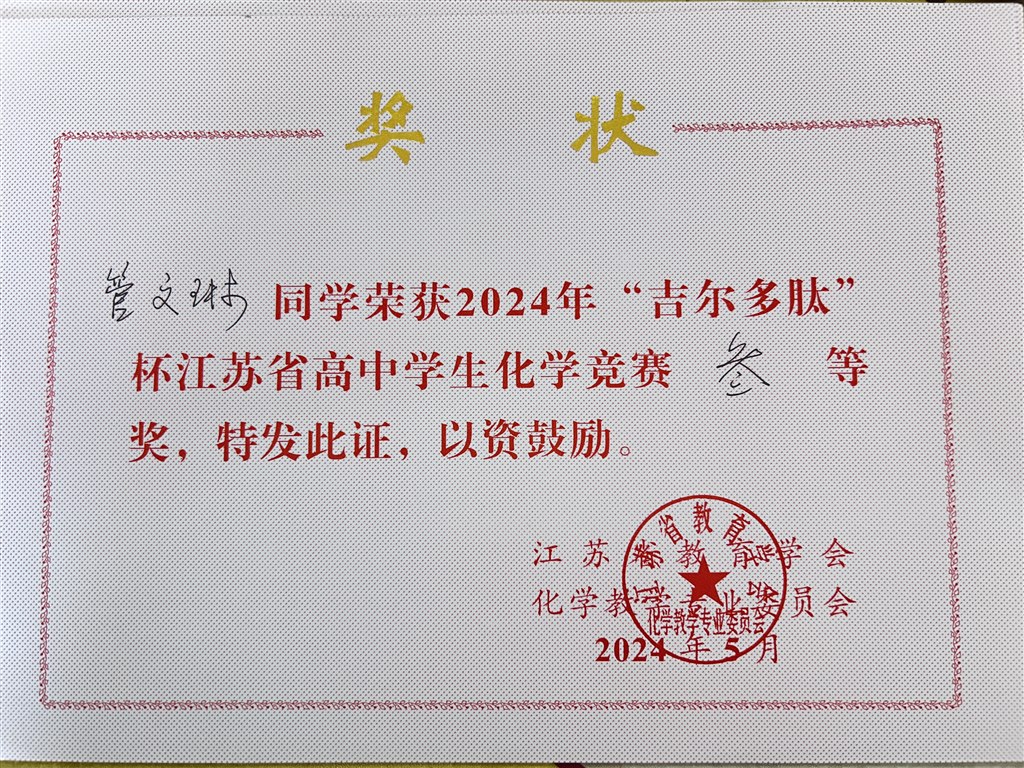 奖状
管文琳 同学荣获2024年“吉尔多肽”
杯江苏省高中学生化学竞赛 叁 等
奖，特发此证，以资鼓励。
江苏省教育学会
化学教学专业委员会
2024 年 5 月
江苏省教育学会
化学教学专业委员会